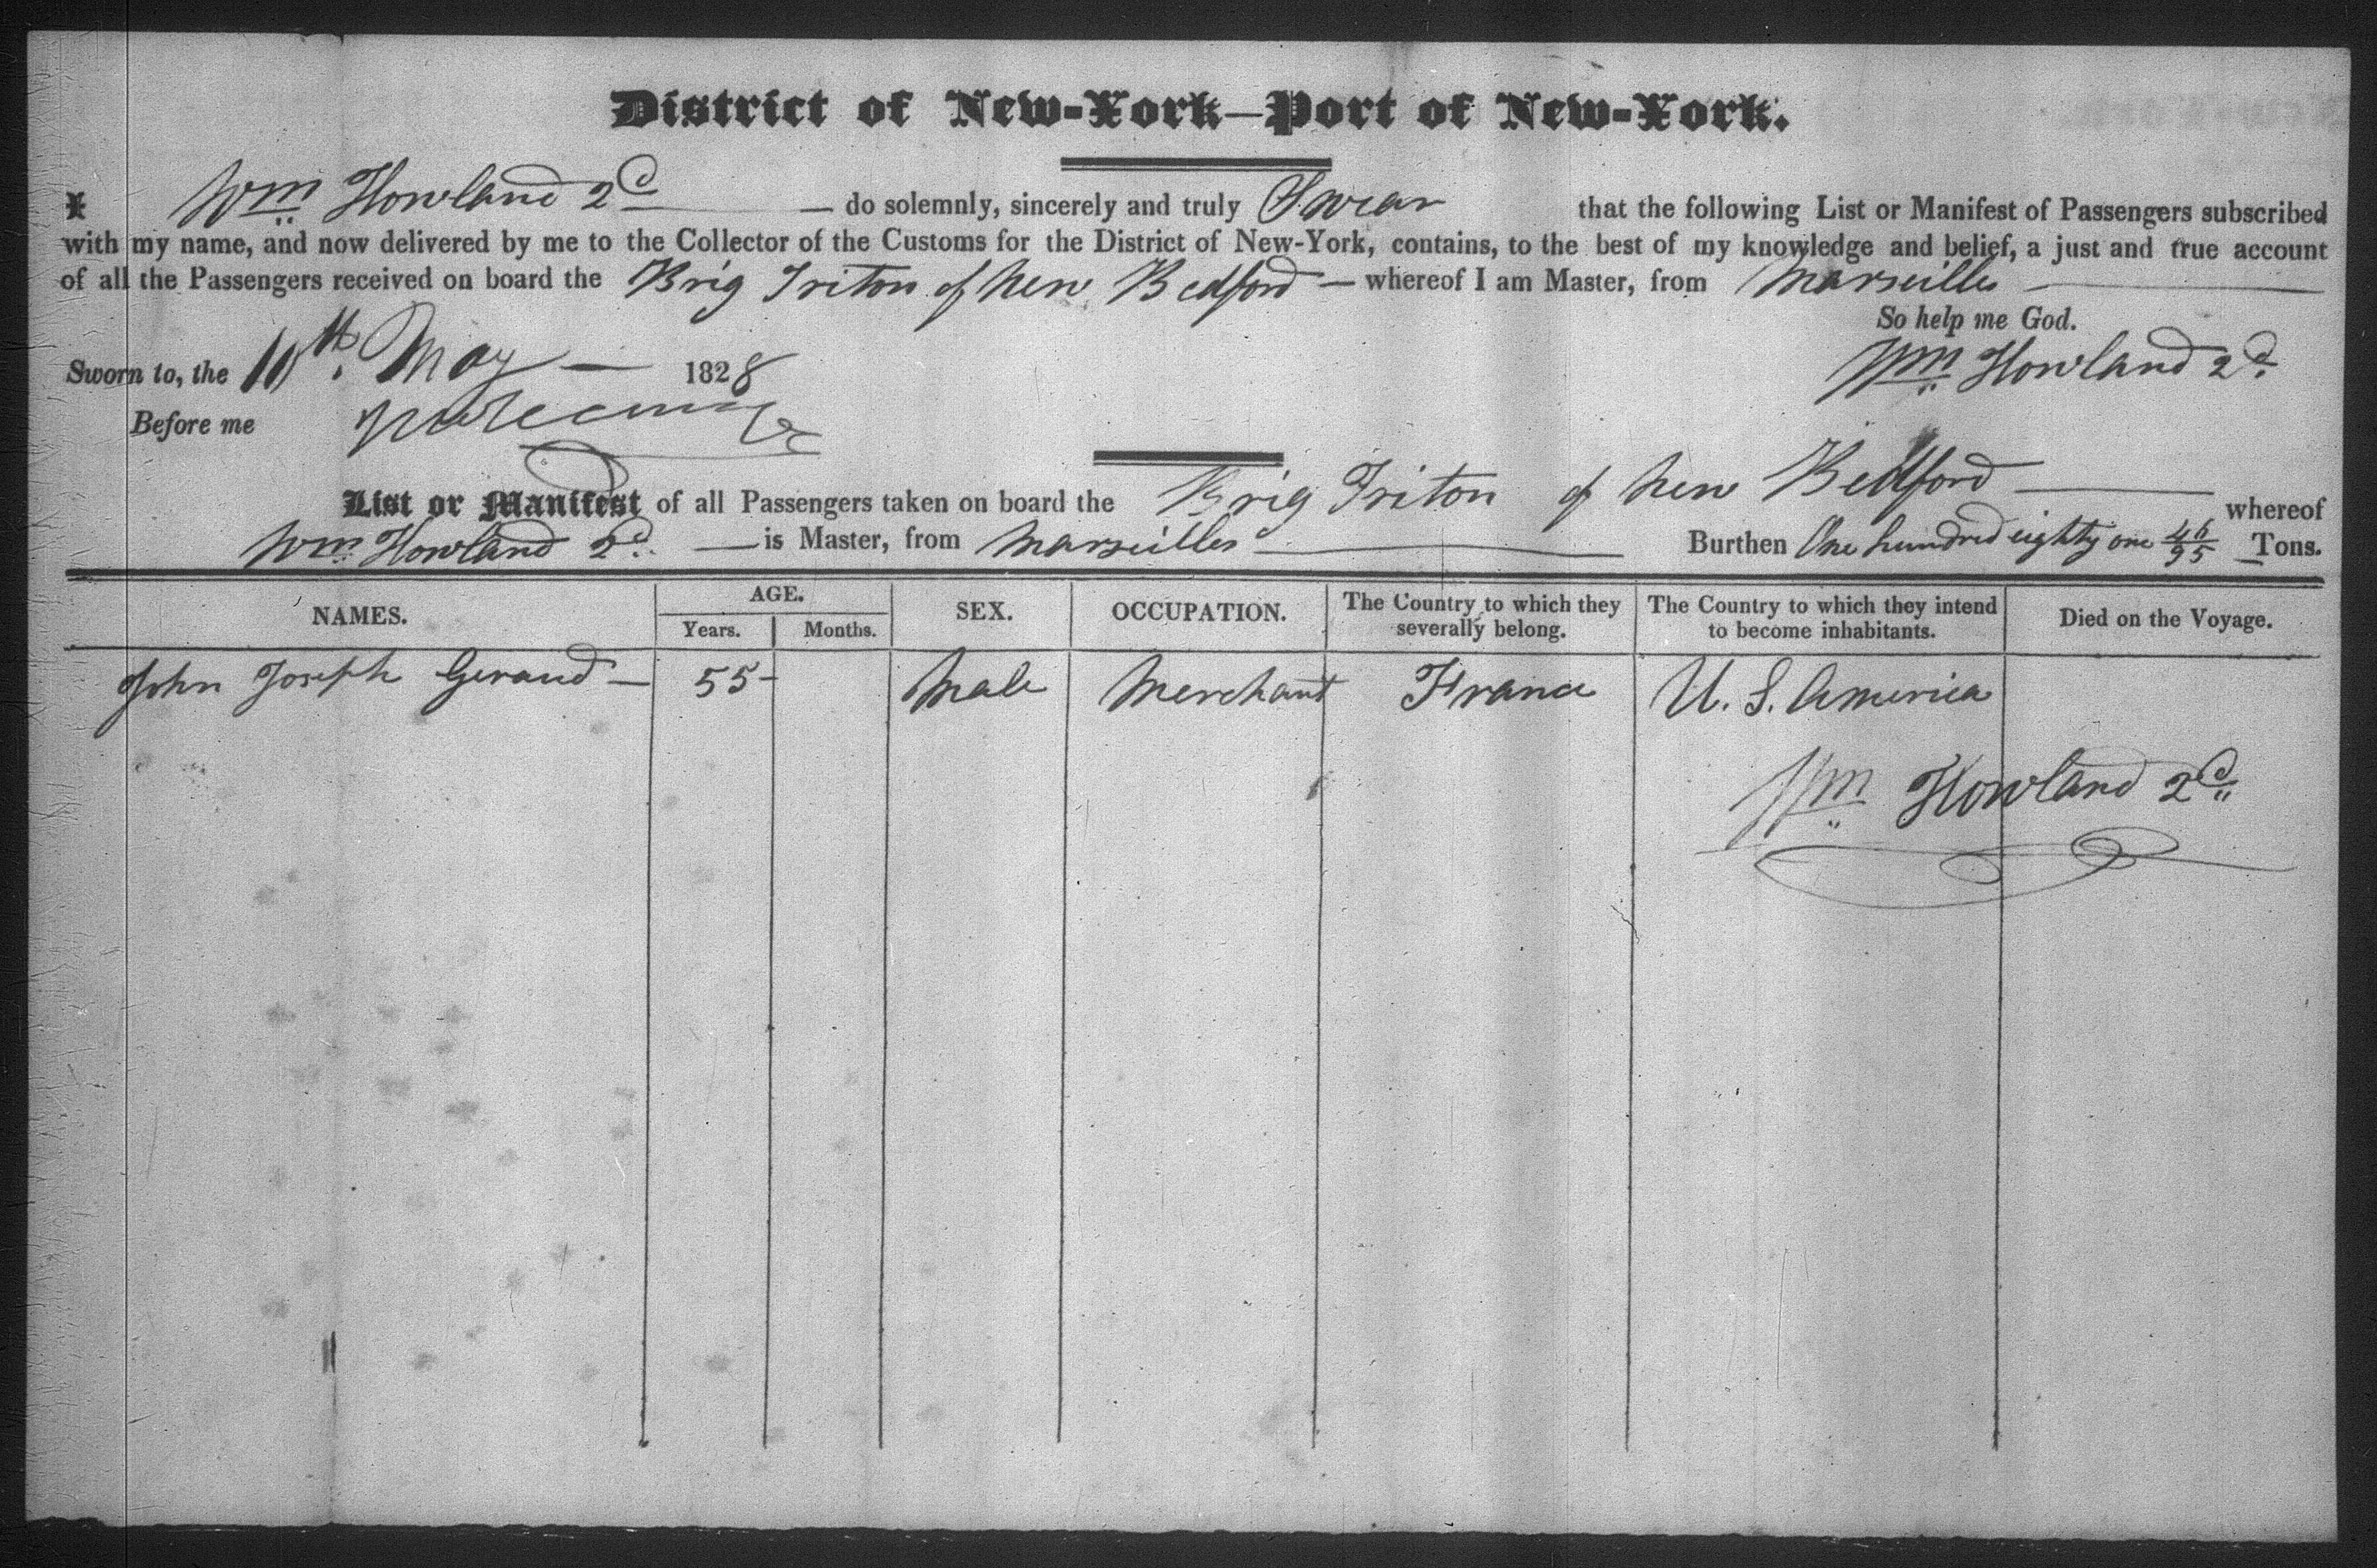 District of New-York—Port of New-York.
I Wm Howland 2d — do solemnly, sincerely and truly Swear that the following List or Manifest of Passengers subscribed
with my name, and now delivered by me to the Collector of the Customs for the District of New-York, contains, to the best of my knowledge and belief, a just and true account
of all the Passengers received on board the Brig Triton of New Bedford — whereof I am Master, from Marseilles —
So help me God.
Sworn to, the 10th May — 1828 Wm Howland 2d
Before me
List or Manifest of all Passengers taken on board the Brig Triton of New Bedford — whereof
Wm Howland 2d. — is Master, from Marseilles — Burthen One hundred eighty one 46/95 Tons.
NAMES. AGE. SEX. OCCUPATION. The Country to which they severally belong. The Country to which they intend to become inhabitants. Died on the Voyage.
Years. Months.
John Joseph Geraud — 55 - Male Merchant France U. S. America
Wm Howland 2d